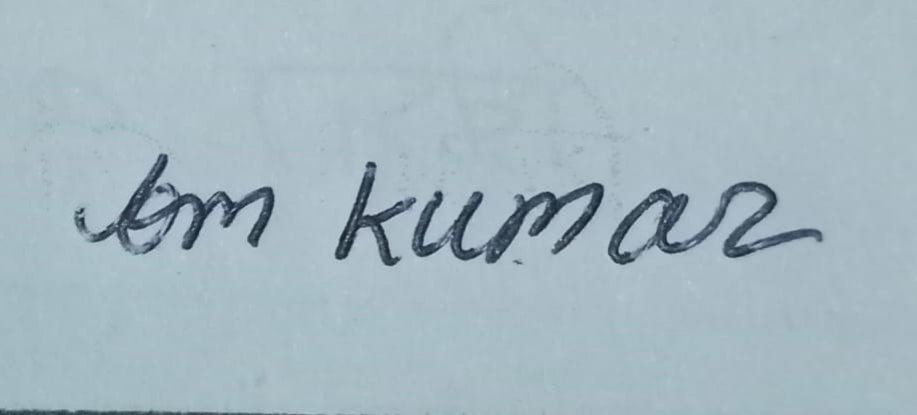 Om Kumar